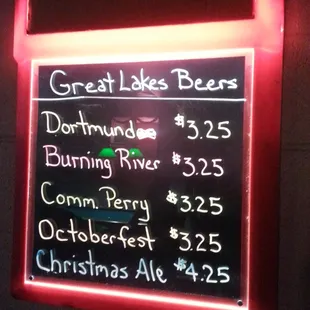 Great Lakes Beers
Dortmunder $3.25
Burning River $3.25
Comm. Perry $3.25
Octoberfest $3.25
Christmas Ale $4.25